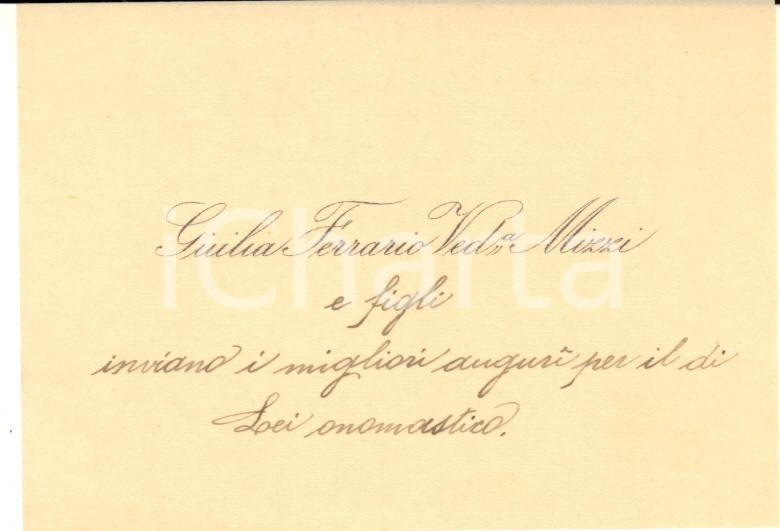 Giulia Ferrario Ved.ª Mizzi
iCharta
e figli
inviano i migliori auguri per il di
Lei onomastico.